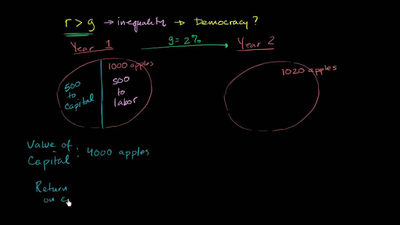 r > g → inequality → Democracy ?
Year 1
g = 2%
Year 2
1000 apples
1020 apples
500
to
capital
500
to
labor
Value of
Capital : 4000 apples
Return
on c